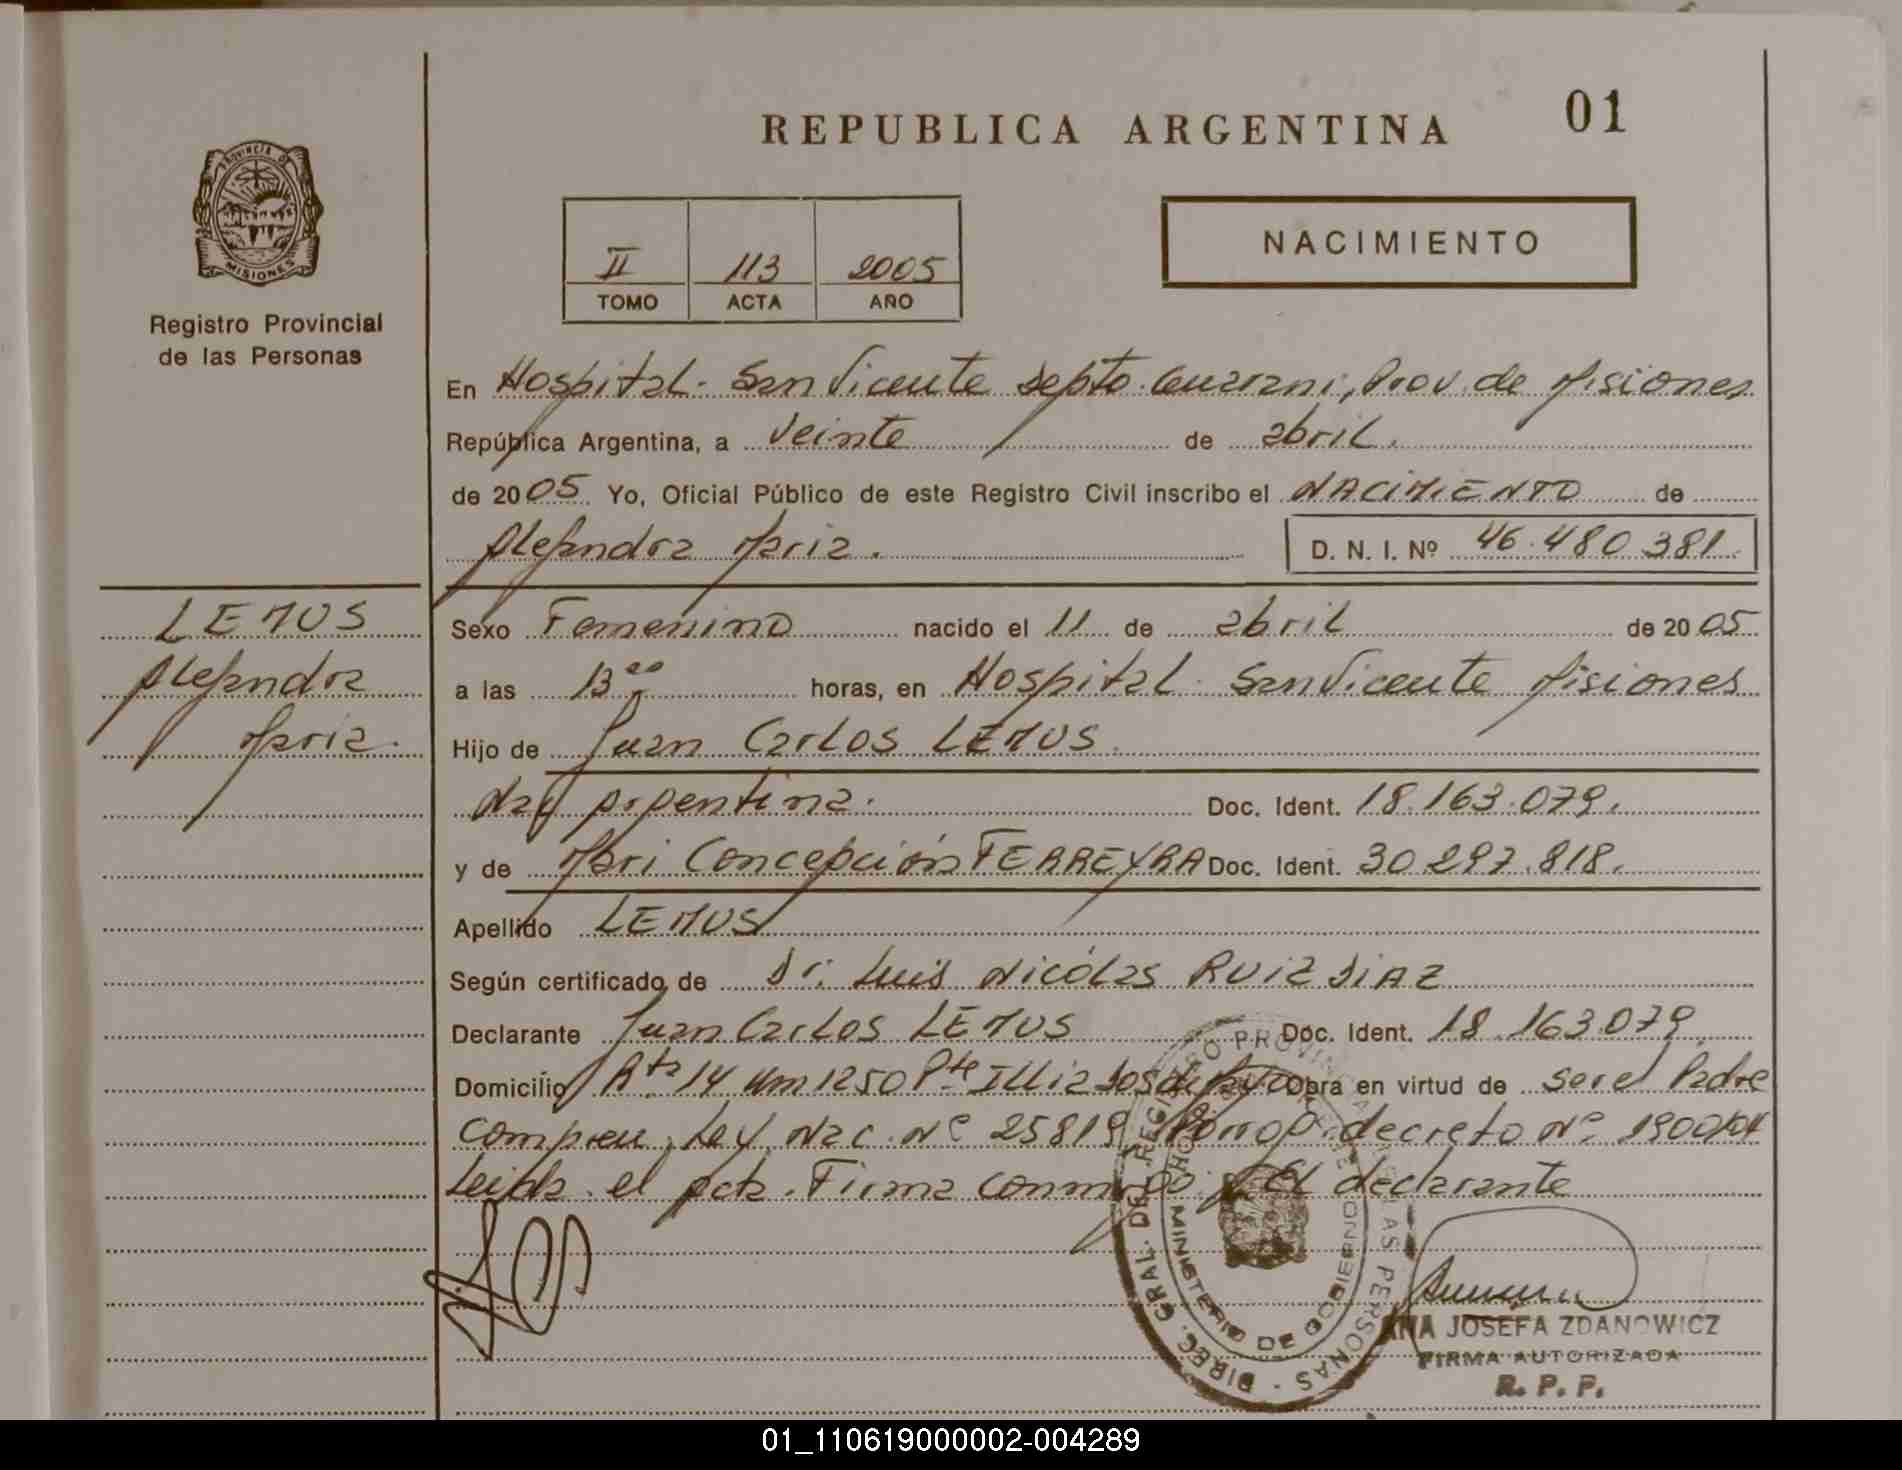 REPUBLICA ARGENTINA 01
PROVINCIA DE
MISIONES
Registro Provincial
de las Personas
II 113 2005
TOMO ACTA AÑO
NACIMIENTO
En Hospital. San Vicente Depto. Guarani, Prov. de Misiones
República Argentina, a Veinte de abril.
de 2005 Yo, Oficial Público de este Registro Civil inscribo el NACIMIENTO de
Alejandra Maria. D. N. I. Nº 46.480.381.
LEMUS
Alejandra
Maria.
Sexo Femenino nacido el 11 de abril de 2005
a las 13 00 horas, en Hospital San Vicente Misiones
Hijo de Juan Carlos LEMUS.
Nac Argentina. Doc. Ident. 18.163.079.
y de Mari Concepción FERREYRA Doc. Ident. 30.297.818.
Apellido LEMUS
Según certificado de Dr. Luis Nicólas RUIZ DIAZ
Declarante Juan Carlos LEMUS Doc. Ident. 18.163.079
Domicilio Rta 14 Km 1250 Pte Illia Obra en virtud de ser el Padre
Ley Nac. Nº 25819 decreto Nº 1900/04
Leida el acta. Firma conmigo el declarante
DIREC. GRAL. DE REGISTRO PROVINCIAL DE LAS PERSONAS
MINISTERIO DE GOBIERNO
ANA JOSEFA ZDANOWICZ
FIRMA AUTORIZADA
R. P. P.
01_110619000002-004289